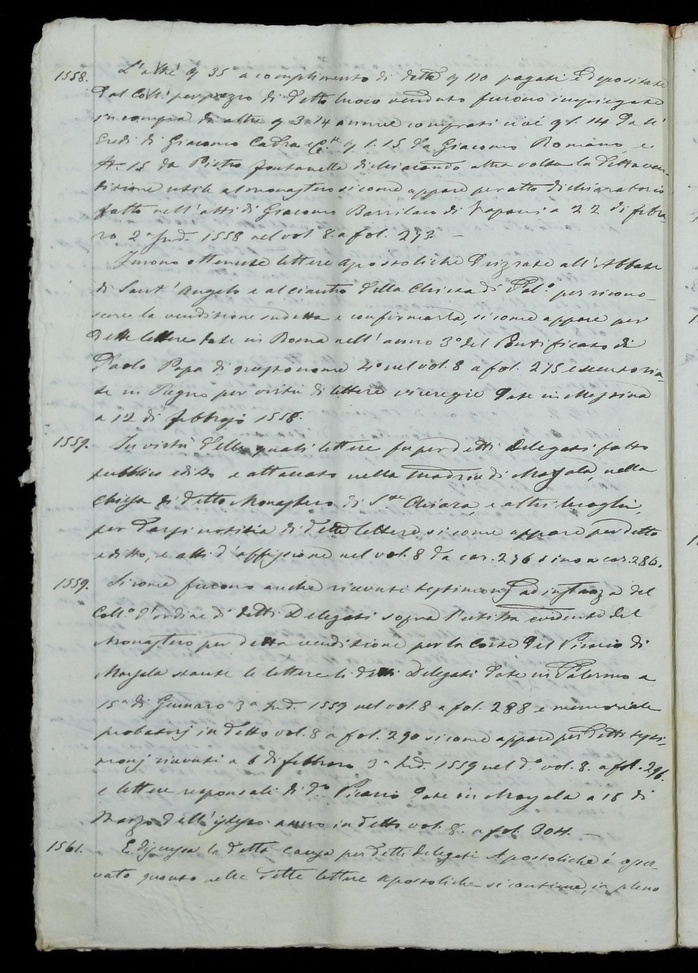 1558. L'altri 35 a complimento di dette 110 pagati e depositate
dal Coll.o per prezzo di detto luoco venduto furono impiegate
in compra di altre 3.14 annue comprati cioè 1.14 dall'
Eredi di Giacomo 1.15 da Giacomo Romano, e
tt. 15 da Pietro Fontanella dichiarando altra volta la detta ven-
dizione utile al monastero si come appare per atto dichiaratorio
fatto nell'atti di Giacomo Barrilaro di Trapani a 22 di febra-
ro 2.a Ind. 1558 nel vol. 8 a fol. 273. —
Furono ottenute lettere apostoliche dirizzate all'Abbate
di Sant'Angelo e al ciantro della Chiesa di Pal.o per ricono-
scere la vendizione sudetta e confirmarla, si come appare per
dette lettere date in Roma nell'anno 3.o del Pontificato di
Paolo Papa di questo nome 4.o nel vol. 8 a fol. 275 esecutoria-
te in Regno per virtù di lettere viceregie date in Messina
a 12 di febbrajo 1558
1559. In virtù delle quali lettere fu per detti Delegati fatto
pubblico editto e attaccato nella madrice di Marsala, nella
chiesa di detto Monastero di S.ta Chiara, e altri luoghi,
per darsi notitia di dette lettere, si come appare per detto
editto, e atti d'affissione nel vol. 8 da car. 276 sino a car. 286.
1559. Si come furono anche ricevuti testimonj ad instanza del
Coll.o d'ordine di detti Delegati sopra l'utilità evidente del
Monastero per detta vendizione per la Corte del Vicario di
Marsala stante le lettere di detti Delegati date in Palermo a
15 di Gennaro 3.a Ind. 1559 nel vol. 8 a fol. 288 e memoriale
probatorj in detto vol. 8 a fol. 290 si come appare per detti testi-
monj ricevuti a 6 di febbraro 3.a Ind. 1559 nel d.o vol. 8. a fol. 296.
e lettere responsali di d.o Vicario date in Marsala a 18 di
Marzo dell'istesso anno in detto vol. 8. a fol. 304. —
1561. E discussa la detta causa per detti delegati Apostolichi è osser-
vato quanto nelle dette lettere apostoliche si contiene, in pleno